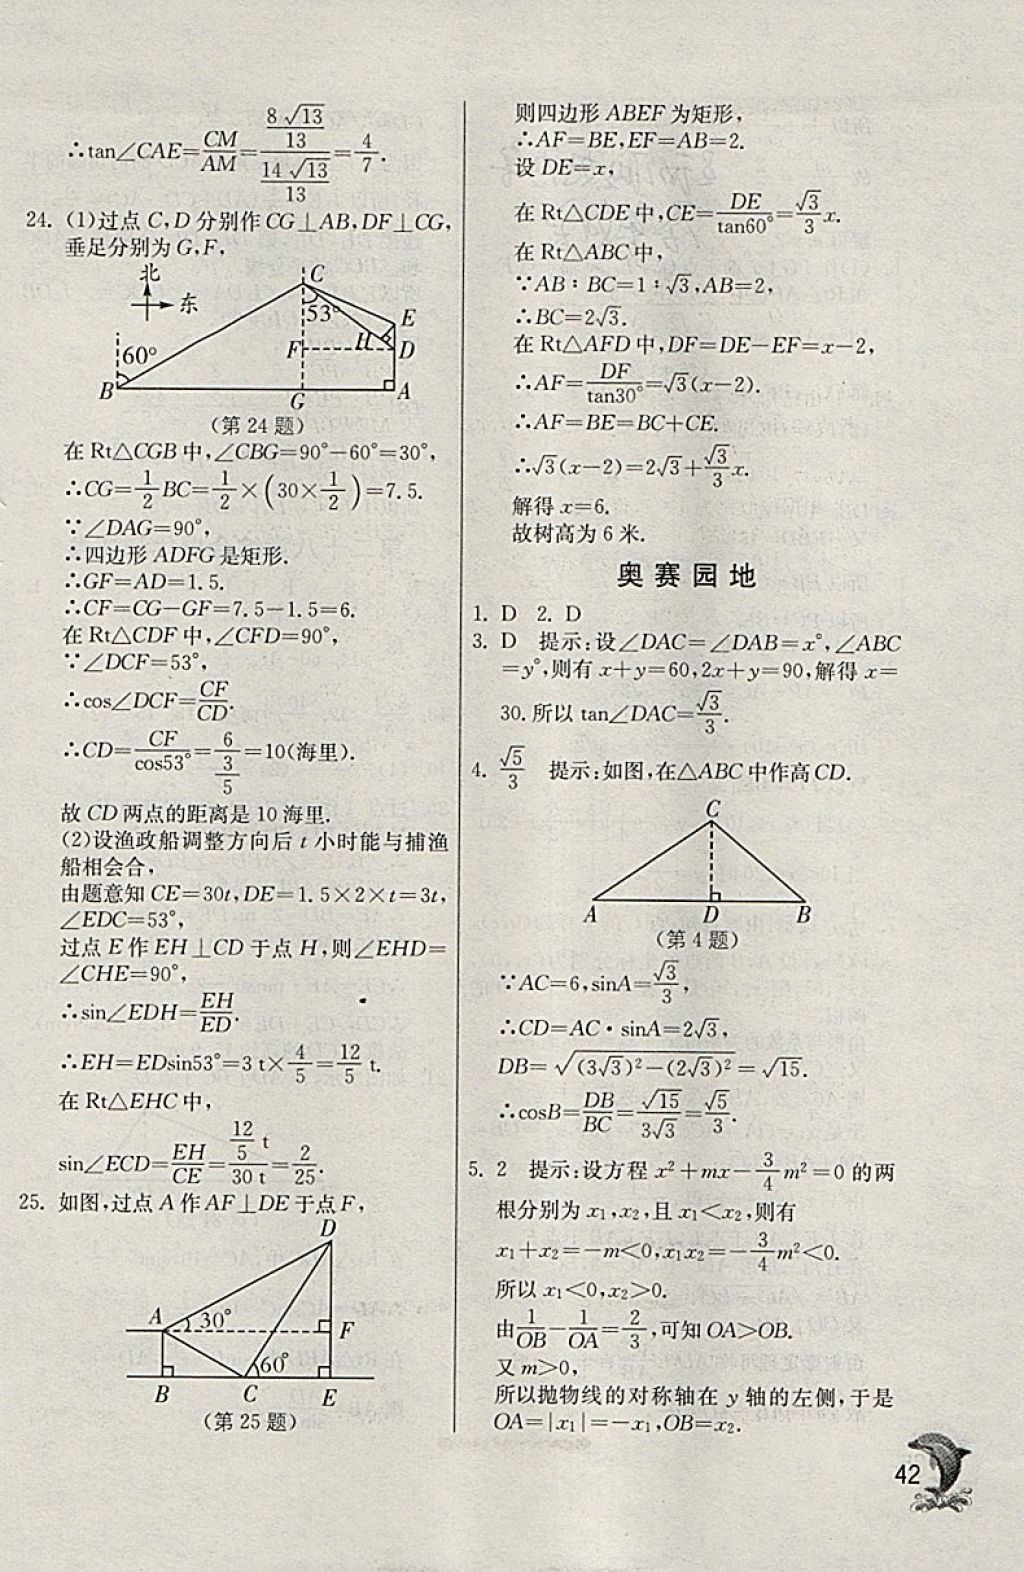 ∴tan∠CAE=CM/AM=(8√13/13)/(14√13/13)=4/7.
24. (1)过点 C,D 分别作 CG⊥AB,DF⊥CG,
垂足分别为 G,F,
北
东
C
53°
E
H
F
D
60°
B
G
A
(第 24 题)
在 Rt△CGB 中,∠CBG=90°-60°=30°,
∴CG=1/2BC=1/2×(30×1/2)=7.5.
∵∠DAG=90°,
∴四边形 ADFG 是矩形.
∴GF=AD=1.5.
∴CF=CG-GF=7.5-1.5=6.
在 Rt△CDF 中,∠CFD=90°,
∵∠DCF=53°,
∴cos∠DCF=CF/CD.
∴CD=CF/cos53°=6/(3/5)=10(海里).
故 CD 两点的距离是 10 海里.
(2)设渔政船调整方向后 t 小时能与捕渔
船相会合,
由题意知 CE=30t,DE=1.5×2×t=3t,
∠EDC=53°,
过点 E 作 EH⊥CD 于点 H,则∠EHD=
∠CHE=90°,
∴sin∠EDH=EH/ED.
∴EH=EDsin53°=3 t×4/5=12/5 t.
在 Rt△EHC 中,
sin∠ECD=EH/CE=(12/5 t)/(30 t)=2/25.
25. 如图,过点 A 作 AF⊥DE 于点 F,
D
A
30°
F
60°
B
C
E
(第 25 题)
则四边形 ABEF 为矩形,
∴AF=BE,EF=AB=2.
设 DE=x,
在 Rt△CDE 中,CE=DE/tan60°=√3/3 x.
在 Rt△ABC 中,
∵AB∶BC=1∶√3,AB=2,
∴BC=2√3.
在 Rt△AFD 中,DF=DE-EF=x-2,
∴AF=DF/tan30°=√3(x-2).
∴AF=BE=BC+CE.
∴√3(x-2)=2√3+√3/3 x.
解得 x=6.
故树高为 6 米.
奥赛园地
1. D 2. D
3. D 提示:设∠DAC=∠DAB=x°,∠ABC
=y°,则有 x+y=60,2x+y=90,解得 x=
30.所以 tan∠DAC=√3/3.
4. √5/3 提示:如图,在△ABC 中作高 CD.
C
A
D
B
(第 4 题)
∵AC=6,sinA=√3/3,
∴CD=AC·sinA=2√3,
DB=√((3√3)²-(2√3)²)=√15.
∴cosB=DB/BC=√15/3√3=√5/3.
5. 2 提示:设方程 x²+mx-3/4m²=0 的两
根分别为 x₁,x₂,且 x₁<x₂,则有
x₁+x₂=-m<0,x₁x₂=-3/4m²<0.
所以 x₁<0,x₂>0.
由1/OB-1/OA=2/3,可知 OA>OB.
又 m>0,
所以抛物线的对称轴在 y 轴的左侧,于是
OA=|x₁|=-x₁,OB=x₂.
42